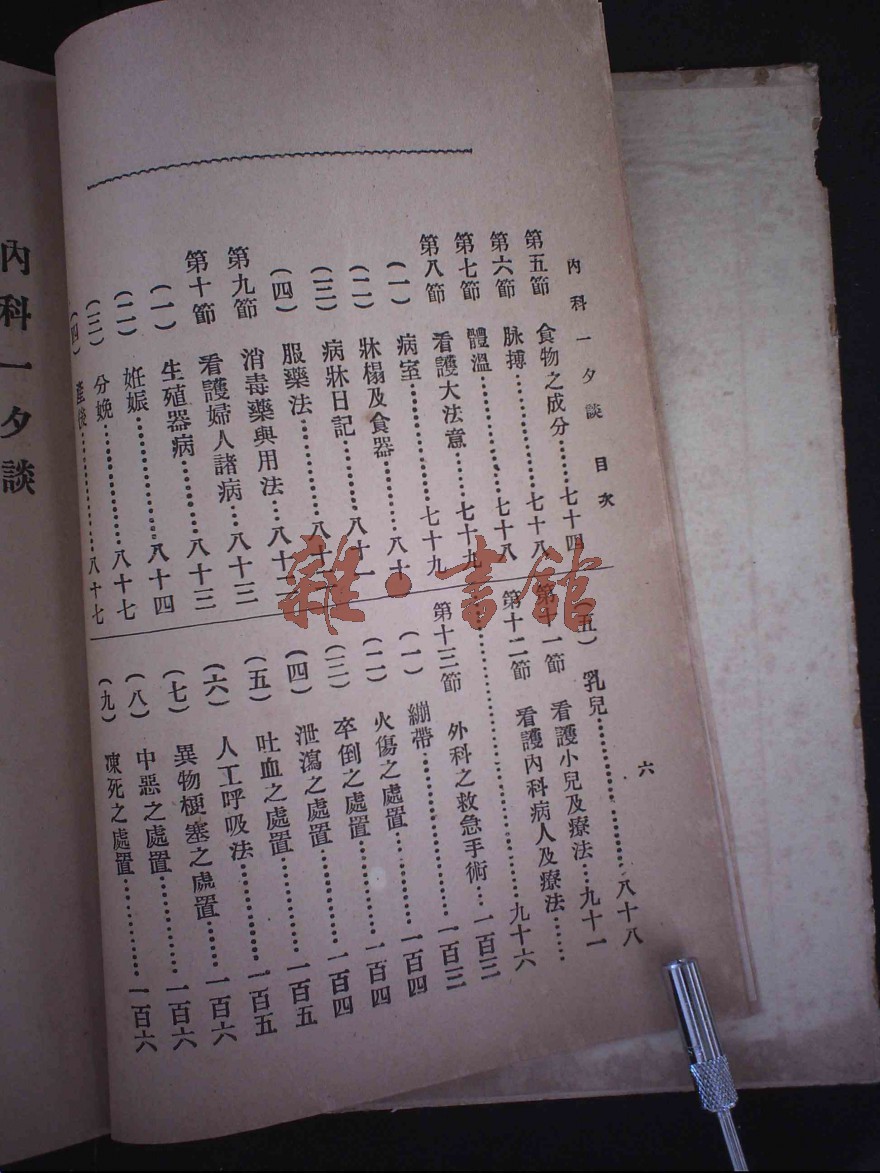 內科一夕談 目次 六
第五節 食物之成分……七十四
第六節 脉搏……七十八
第七節 體溫……七十八
第八節 看護大法意……七十九
(一) 病室……七十九
(二) 牀榻及食器……八十
(三) 病牀日記……八十一
(四) 服藥法……八十二
第九節 消毒藥與用法……八十二
第十節 看護婦人諸病……八十三
(一) 生殖器病……八十三
(二) 妊娠……八十四
(三) 分娩……八十七
(四) 產後……八十七
(五) 乳兒……八十八
第十一節 看護小兒及療法……九十一
第十二節 看護內科病人及療法……
……九十六
第十三節 外科之救急手術……一百三
(一) 繃帶……一百三
(二) 火傷之處置……一百四
(三) 卒倒之處置……一百四
(四) 泄瀉之處置……一百四
(五) 吐血之處置……一百五
(六) 人工呼吸法……一百五
(七) 異物梗塞之處置……一百六
(八) 中惡之處置……一百六
(九) 凍死之處置……一百六
內科一夕談
雜·書館